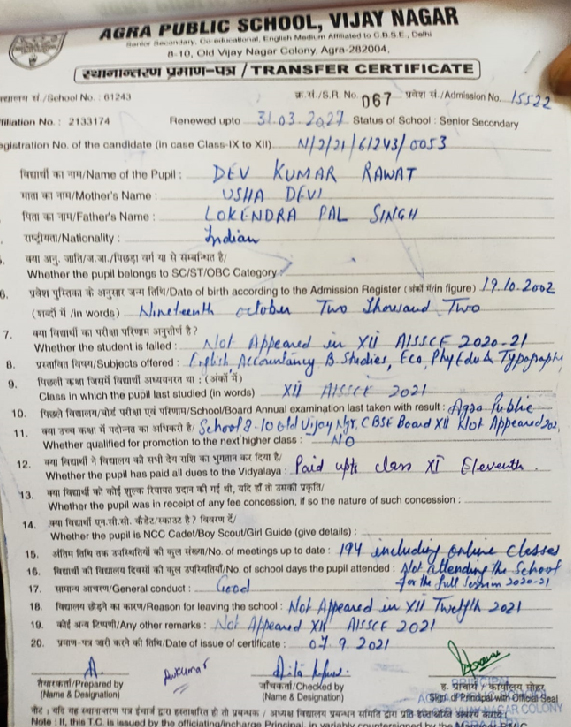 AGRA PUBLIC SCHOOL, VIJAY NAGAR
Senior Secondary, Co-educational, English Medium Affiliated to C.B.S.E., Delhi
8-10, Old Vijay Nagar Colony, Agra-282004,
स्थानान्तरण प्रमाण-पत्र / TRANSFER CERTIFICATE
सं./School No. : 61243 क्र.सं./S.R. No. 067 प्रवेश सं./Admission No. 15522
filiation No. : 2133174 Renewed upto 31.03.2027 Status of School : Senior Secondary
egistration No. of the candidate (in case Class-IX to XII) N/2/21/61243/0053
विद्यार्थी का नाम/Name of the Pupil : DEV KUMAR RAWAT
माता का नाम/Mother's Name : USHA DEVI
पिता का नाम/Father's Name : LOKENDRA PAL SINGH
राष्ट्रीयता/Nationality : Indian
क्या अनु. जाति/अ.जा./पिछड़ा वर्ग या से सम्बन्धित है/
Whether the pupil belongs to SC/ST/OBC Category :
6. प्रवेश पुस्तिका के अनुसार जन्म तिथि/Date of birth according to the Admission Register (अंकों में/in figure) 19.10.2002
(शब्दों में /in words) Nineteenth october Two Thousand Two
7. क्या विद्यार्थी का परीक्षा परिणाम अनुत्तीर्ण है?
Whether the student is failed : Not Appeared in XII AISSCE 2020-21
8. प्रस्तावित विषय/Subjects offered : English, Accountancy, B Studies, Eco, Phy Edu & Typography
9. पिछली कक्षा जिसमें विद्यार्थी अध्ययनरत था : (अंकों में)
Class in which the pupil last studied (in words) XII AISSCE 2021
10. पिछले विद्यालय/बोर्ड परीक्षा एवं परिणाम/School/Board Annual examination last taken with result : Agra Public
11. क्या उच्च कक्षा में पदोन्नत का अधिकारी है/ School 8-10 old Vijay Ngr. CBSE Board XII Not Appeared
Whether qualified for promotion to the next higher class : NO
12. क्या विद्यार्थी ने विद्यालय की सभी देय राशि का भुगतान कर दिया है/
Whether the pupil has paid all dues to the Vidyalaya : Paid upto class XI Eleventh.
13. क्या विद्यार्थी को कोई शुल्क रियायत प्रदान की गई थी, यदि हाँ तो उसकी प्रकृति/
Whether the pupil was in receipt of any fee concession, if so the nature of such concession :
14. क्या विद्यार्थी एन.सी.सी. कैडेट/स्काउट है? विवरण दें/
Whether the pupil is NCC Cadet/Boy Scout/Girl Guide (give details) :
15. अंतिम तिथि तक उपस्थितियों की कुल संख्या/No. of meetings up to date : 194 including online classes
16. विद्यार्थी की विद्यालय दिवसों की कुल उपस्थितियाँ/No. of school days the pupil attended : Not attending the School
17. सामान्य आचरण/General conduct : Good for the full Session 2020-21
18. विद्यालय छोड़ने का कारण/Reason for leaving the school : Not Appeared in XII Twelfth 2021
19. कोई अन्य टिप्पणी/Any other remarks : Not Appeared XII AISSCE 2021
20. प्रमाण-पत्र जारी करने की तिथि/Date of issue of certificate : 07.9.2021
लेखाकर्ता/Prepared by जाँचकर्ता/Checked by ह. प्राचार्य / कार्यालय मोहर
(Name & Designation) (Name & Designation) Sign of Principal with Official Seal
Note : II, this T.C. is issued by the officiating/incharge Principal, in variably countersigned by the